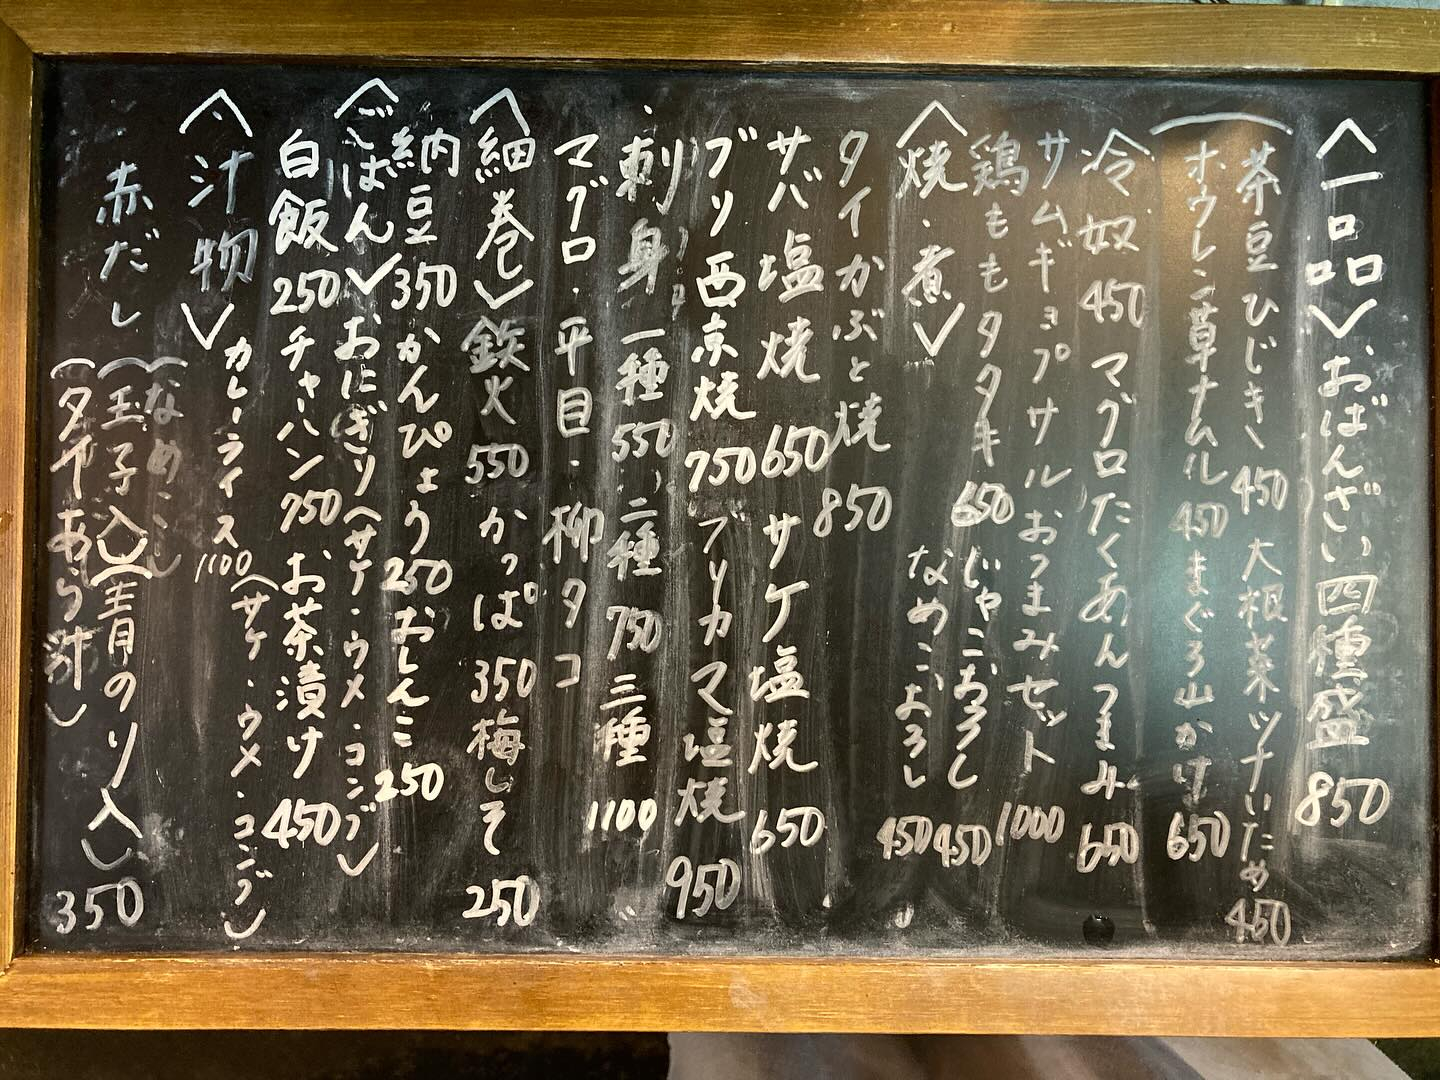 〈一品〉おばんざい四種盛 850
茶豆ひじき 450 大根菜ツナいため 450
ホウレン草ナムル 450 まぐろ山かけ 650
冷奴 450 マグロたくあんつまみ 650
サムギョプサルおつまみセット 1000
鶏ももタタキ 650 じゃこおろし 450
なめこおろし 450
〈焼・煮〉
タイかぶと焼 850
サバ塩焼 650 サケ塩焼 650
ブリ西京焼 750 ブリカマ塩焼 950
刺身 一種 550 二種 750 三種 1100
マグロ・平目・柳タコ
〈細巻〉鉄火 550 かっぱ 350 梅しそ 250
納豆 350 かんぴょう 250 おしんこ 250
〈ごはん〉おにぎり〈サケ・ウメ・コンブ〉
白飯 250 チャーハン 750 お茶漬け 450
〈サケ・ウメ・コンブ〉
カレーライス 1100
〈汁物〉
(なめこ)
赤だし(玉子入)(青のり入) 350
(タイあら汁)